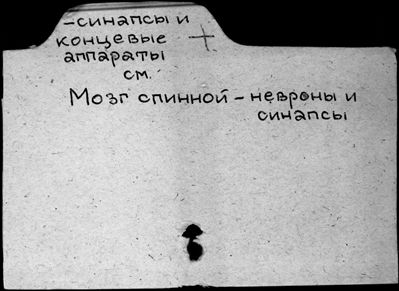 -синапсы и
концевые
аппараты
см.
Мозг спинной - невроны и
синапсы